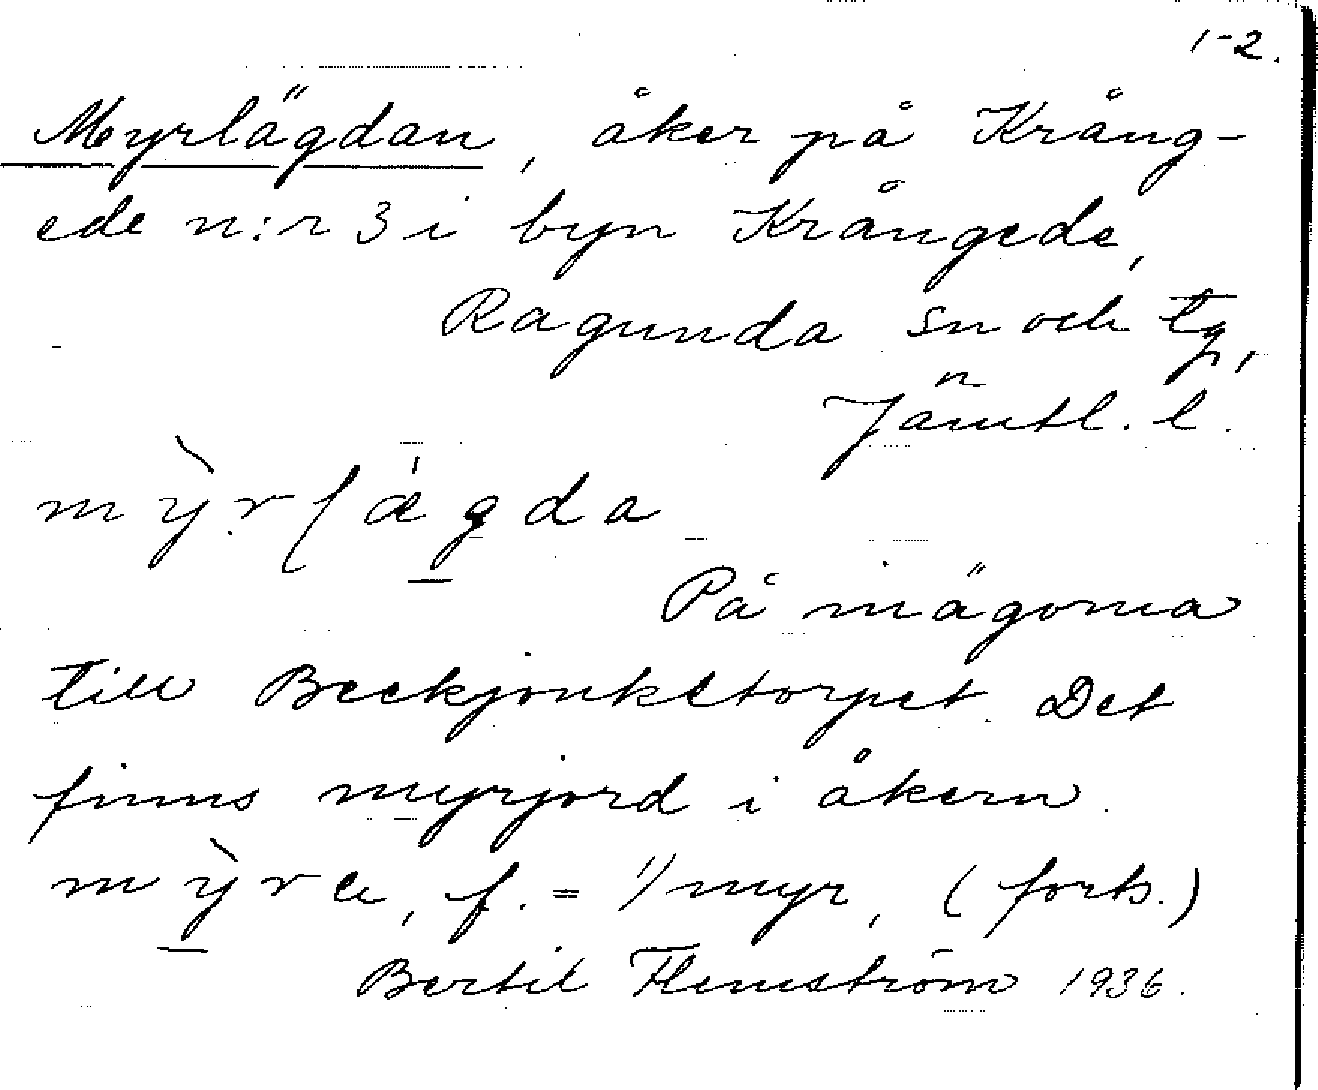 1-2.
Myrlägdan, åker på Krång-
ede n:r 3 i byn Krångede,
Ragunda sn och tg,
Jämtl. l.
mỳrlǽgda
På mägorna
till Beckjonketorpet. Det
finns myrjord i åkern.
mỳra, f. = 1/ myr, (forts.)
Bertil Flemström 1936.